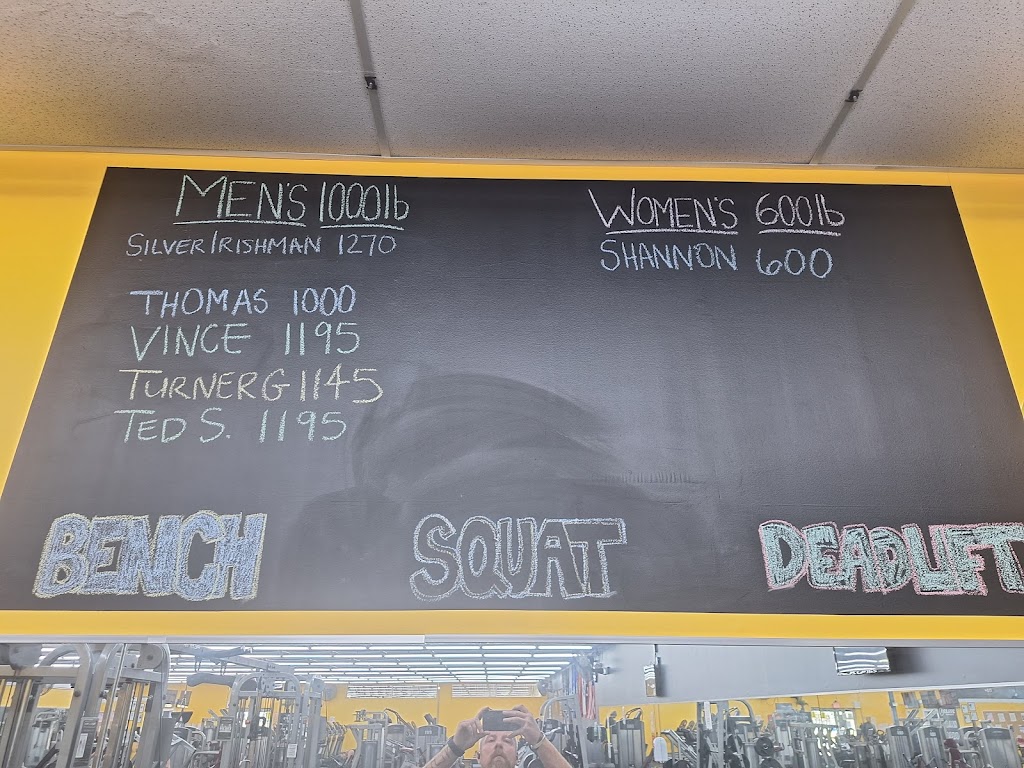 MEN'S 1000lb
SILVER IRISHMAN 1270
THOMAS 1000
VINCE 1195
TURNER G 1145
TED S. 1195
WOMEN'S 600lb
SHANNON 600
BENCH SQUAT DEADLIFT